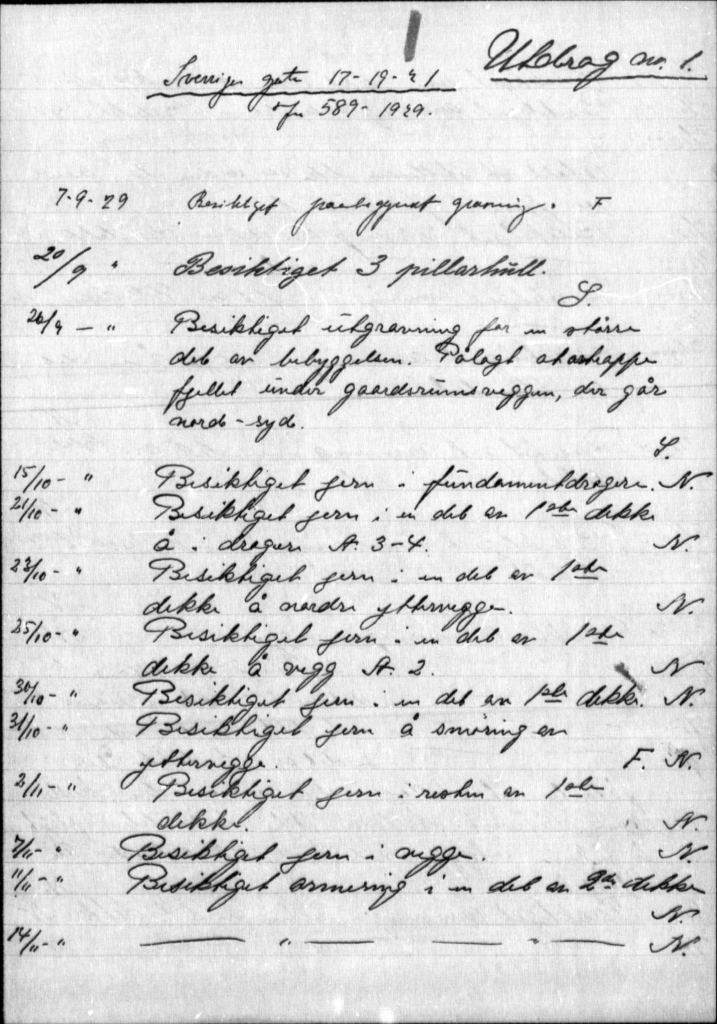 Utdrag no. 1.
Sverriges gate 17-19-21
589-1929.
7-9-29 Besiktiget paabegynnt gravning. F
20/9 " Besiktiget 3 pillarhull.
S.
26/9 - " Besiktiget utgravning for en större
del av bebyggelsen. Pålagt at avtrappe
fjellet under gaardsrumsveggen, der går
nord-syd.
S.
15/10- " Besiktiget jern i fundamentdragere. N.
21/10- " Besiktiget jern i en del av 1ste dekke
å i dragere A. 3-4. N.
23/10- " Besiktiget jern i en del av 1ste
dekke å nordre yttervegge. N.
25/10- " Besiktiget jern i en del av 1ste
dekke å vegg A. 2. N
30/10- " Besiktiget jern i en del av 1ste dekke. N.
31/10- " Besiktiget jern å smöring av
yttervegge. F. N.
2/11- " Besiktiget jern i resten av 1ste
dekke. N.
7/11- " Besiktiget jern i vegge. N.
11/11- " Besiktiget armering i en del av 2det dekke
N.
14/11- " — " — — " — N.